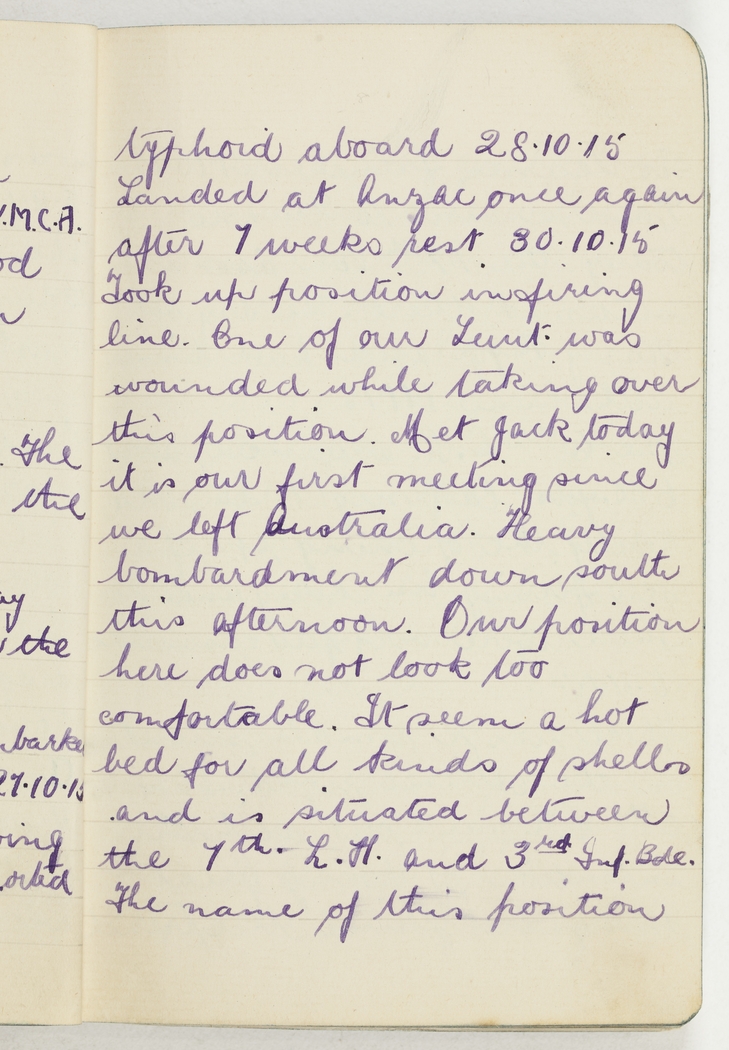 Y.M.C.A.
The
the
the
27.10.15
typhoid aboard 28.10.15
Landed at Anzac once again
after 7 weeks rest 30.10.15
Took up position in firing
line. One of our Leut. was
wounded while taking over
this position. Met Jack today
it is our first meeting since
we left Australia. Heavy
bombardment down south
this afternoon. Our position
here does not look too
comfortable. It seem a hot
bed for all kinds of shells
.and is situated between
the 7th. L.H. and 3rd Inf. Bde.
The name of this position